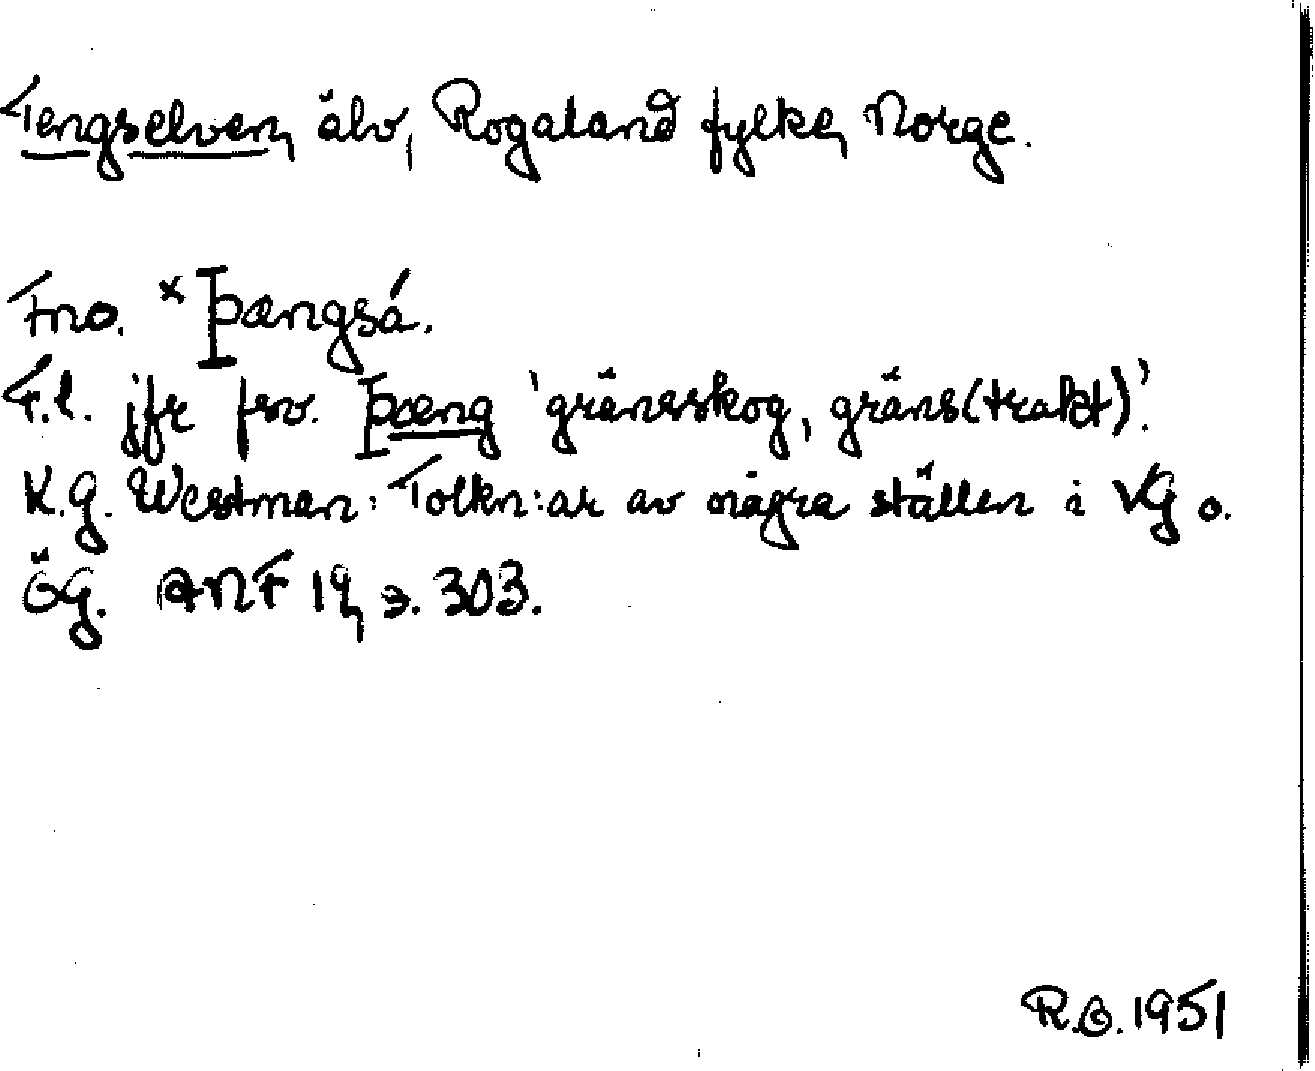 Tengselven, älv, Rogaland fylke, Norge.
Fno. *Þængsá.
F.l. jfr fsv. þæng 'gränsskog, gräns(trakt)'.
K.G. Westman: Tolkn:ar av några ställen i VG o.
ÖG. ANF 19, s. 303.
R.O. 1951